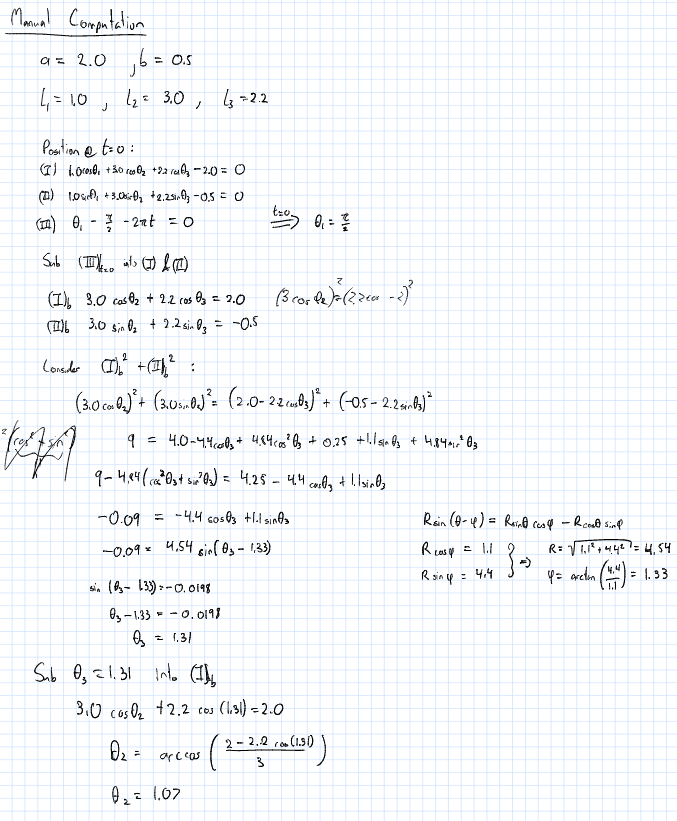 Manual Computation
a = 2.0 , b = 0.5
L₁ = 1.0 , L₂ = 3.0 , L₃ = 2.2
Position @ t=0 :
(I) 1.0cosθ₁ + 3.0 cosθ₂ + 2.2 cosθ₃ - 2.0 = 0
(II) 1.0sinθ₁ + 3.0sinθ₂ + 2.2sinθ₃ - 0.5 = 0
(III) θ₁ - π/2 - 2πt = 0 t=0 ⟹ θ₁ = π/2
Sub (III)|t=0 into (I) & (II)
(I)b 3.0 cosθ₂ + 2.2 cosθ₃ = 2.0 (3 cosθ₂)² = (2.2cos - 2)²
(II)b 3.0 sinθ₂ + 2.2sinθ₃ = -0.5
Consider (I)b² + (II)b² :
(3.0 cosθ₂)² + (3.0sinθ₂)² = (2.0 - 2.2cosθ₃)² + (-0.5 - 2.2sinθ₃)²
9 = 4.0 - 4.4cosθ₃ + 4.84cos²θ₃ + 0.25 + 1.1sinθ₃ + 4.84sin²θ₃
9 - 4.84(cos²θ₃ + sin²θ₃) = 4.25 - 4.4 cosθ₃ + 1.1sinθ₃
-0.09 = -4.4 cosθ₃ + 1.1 sinθ₃
-0.09 = 4.54 sin(θ₃ - 1.33)
sin (θ₃ - 1.33) = -0.0198
θ₃ - 1.33 = -0.0198
θ₃ = 1.31
R sin(θ-φ) = R sinθ cosφ - R cosθ sinφ
R cosφ = 1.1
R sinφ = 4.4
} ⇒ R = √(1.1² + 4.4²) = 4.54
φ = arctan(4.4/1.1) = 1.33
Sub θ₃ = 1.31 into (I)b
3.0 cosθ₂ + 2.2 cos (1.31) = 2.0
θ₂ = arccos ( (2 - 2.2 cos(1.31)) / 3 )
θ₂ = 1.07